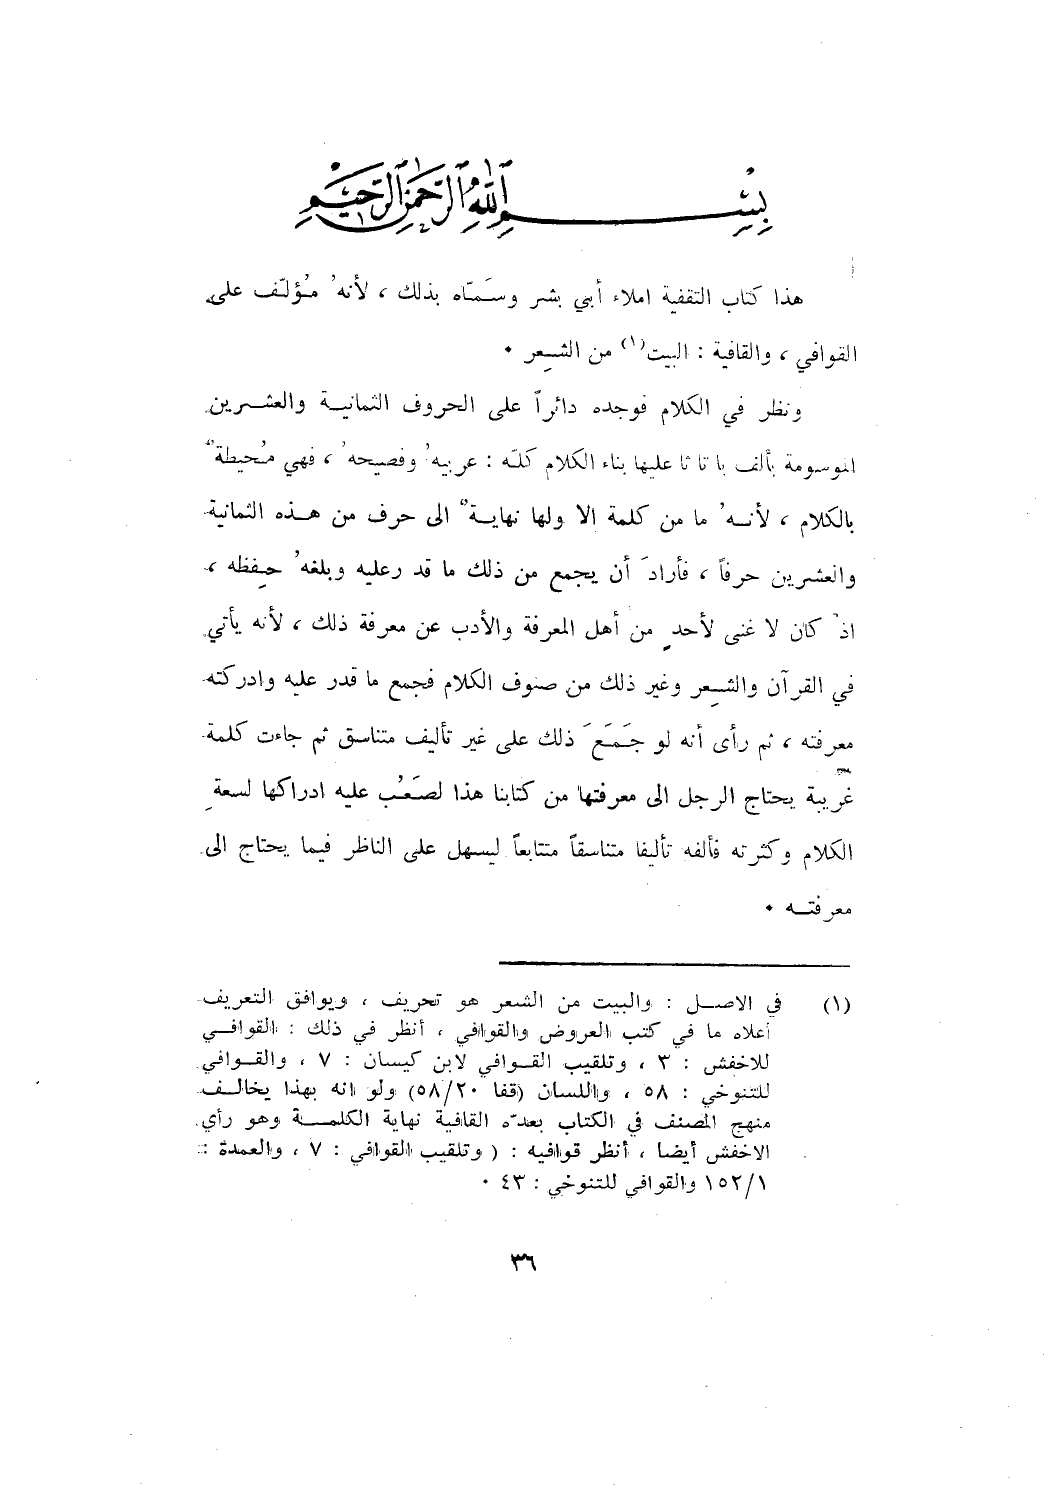 بسم الله الرحمن الرحيم
هذا كتاب التقفية املاء أبي بشر وسَمّاه بذلك ، لأنهُ مُؤلّف على
القوافي ، والقافية : البيت(١) من الشِعر ٠
ونظر في الكلام فوجده دائراً على الحروف الثمانية والعشرين
الموسومة بألف با تا ثا عليها بناء الكلام كلّه : عربيهُ وفصيحهُ ، فهي مُحيطةٌ
بالكلام ، لأنهُ ما من كلمة الا ولها نهايةٌ الى حرف من هذه الثمانية
والعشرين حرفاً ، فأرادَ أن يجمع من ذلك ما قد رعليه وبلغهُ حِفظه ،
اذْ كان لا غنى لأحدٍ من أهل المعرفة والأدب عن معرفة ذلك ، لأنه يأتي
في القرآن والشِعر وغير ذلك من صنوف الكلام فجمع ما قدر عليه وادركته
معرفته ، ثم رأى أنه لو جَمَعَ ذلك على غير تأليف متناسق ثم جاءت كلمة
غريبة يحتاج الرجل الى معرفتها من كتابنا هذا لصَعُب عليه ادراكها لسعةِ
الكلام وكثرته فألفه تأليفا متناسقاً متتابعاً ليسهل على الناظر فيما يحتاج الى
معرفته ٠
(١) في الاصل : والبيت من الشعر هو تحريف ، ويوافق التعريف
أعلاه ما في كتب العروض والقوافي ، أنظر في ذلك : القوافي
للاخفش : ٣ ، وتلقيب القوافي لابن كيسان : ٧ ، والقوافي
للتنوخي : ٥٨ ، واللسان (قفا ٥٨/٢٠) ولو انه بهذا يخالف
منهج المصنف في الكتاب بعدّه القافية نهاية الكلمة وهو رأي
الاخفش أيضا ، أنظر قوافيه : ( وتلقيب القوافي : ٧ ، والعمدة :
١٥٢/١ والقوافي للتنوخي : ٤٣ ٠
٣٦